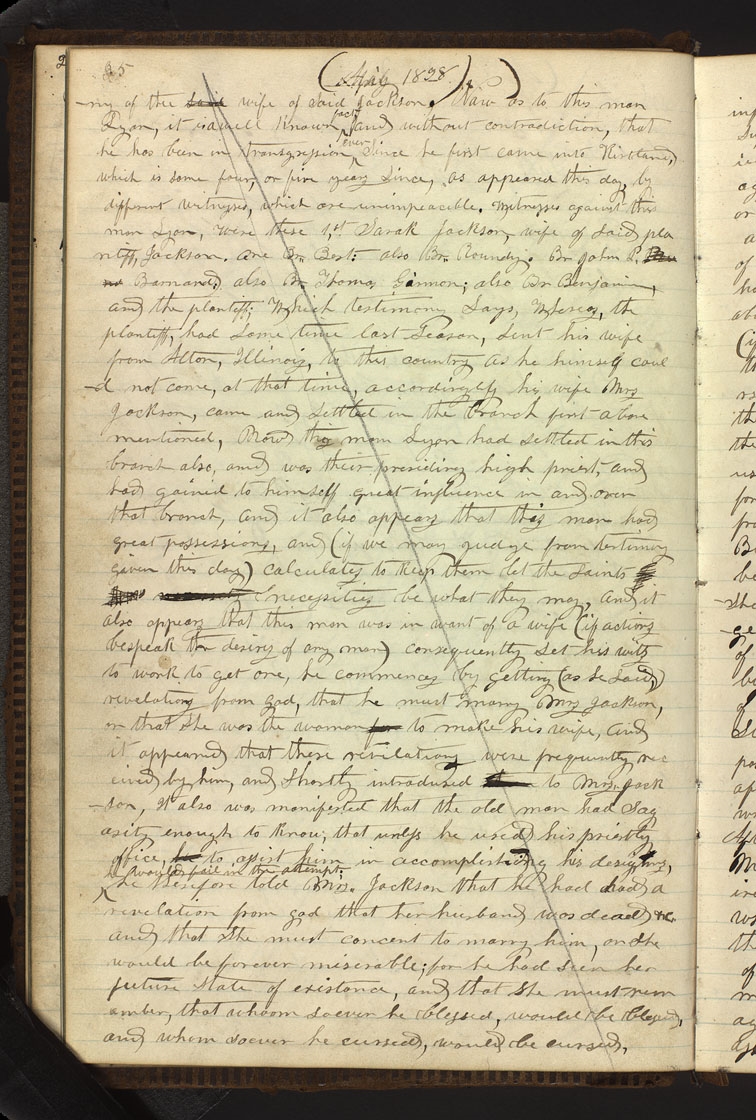 25
(April 1838.)
-ny of the said wife of said Jackson. Now as to this man
Lyon, it is well known fact, and without contradiction, that
he has been in transgression ever since he first came into Kirtland,
which is some four, or five years since, as appeared this day, by
different witnesses, which are unimpeacible. Witnesses against this
man Lyon, were these 1st Sarah Jackson, wife of said pla
ntiff, Jackson. one Br. Best: also Br. Roundy. Br John P.
Barnard; also Br. Thomas Gannon; also Br Benjamin,
and the plantiff; Which testimony, Says, Whereas, the
plantiff, had some time last season, sent his wife
from Alton, Illinois, to this country as he himself coul
-d not come, at that time, accordingly his wife Mrs
Jackson, came and settled in the Branch first above
mentioned, Now this man Lyon had settled in this
branch also, and was their presiding high priest, and
had gained to himself great influence in and over
that branch, and it also appears that this man had
great possessions, and (if we may judge from testimony
given this day) calculates to keep them let the saints
necessities be what they may, and it
also appears that this man was in want of a wife (if actions
bespeak the desires of any man) consequently set his wits
to work to get one, he commences by getting (as he said,)
revelations from god, that he must marry Mrs Jackson,
or that she was the woman for to make his wife, and
it appeared that these revelations were frequently rec
eived by him, and shortly introdused to Mrs. Jack
-son, It also was manifested that the old man had sag
asity enough to know, that unless he used his priestly
office, to assist him in accomplishing his designs,
he would fail in the attempt;
he therefore told Mrs. Jackson that he had had a
revelation from god that her husband was dead &c.
and that she must concent to marry him, or she
would be forever miserable; for he had seen her
future state of existance, and that she must rem
ember, that whoom soever he blessed, would be blessed,
and whom soever he cursed, would be cursed,